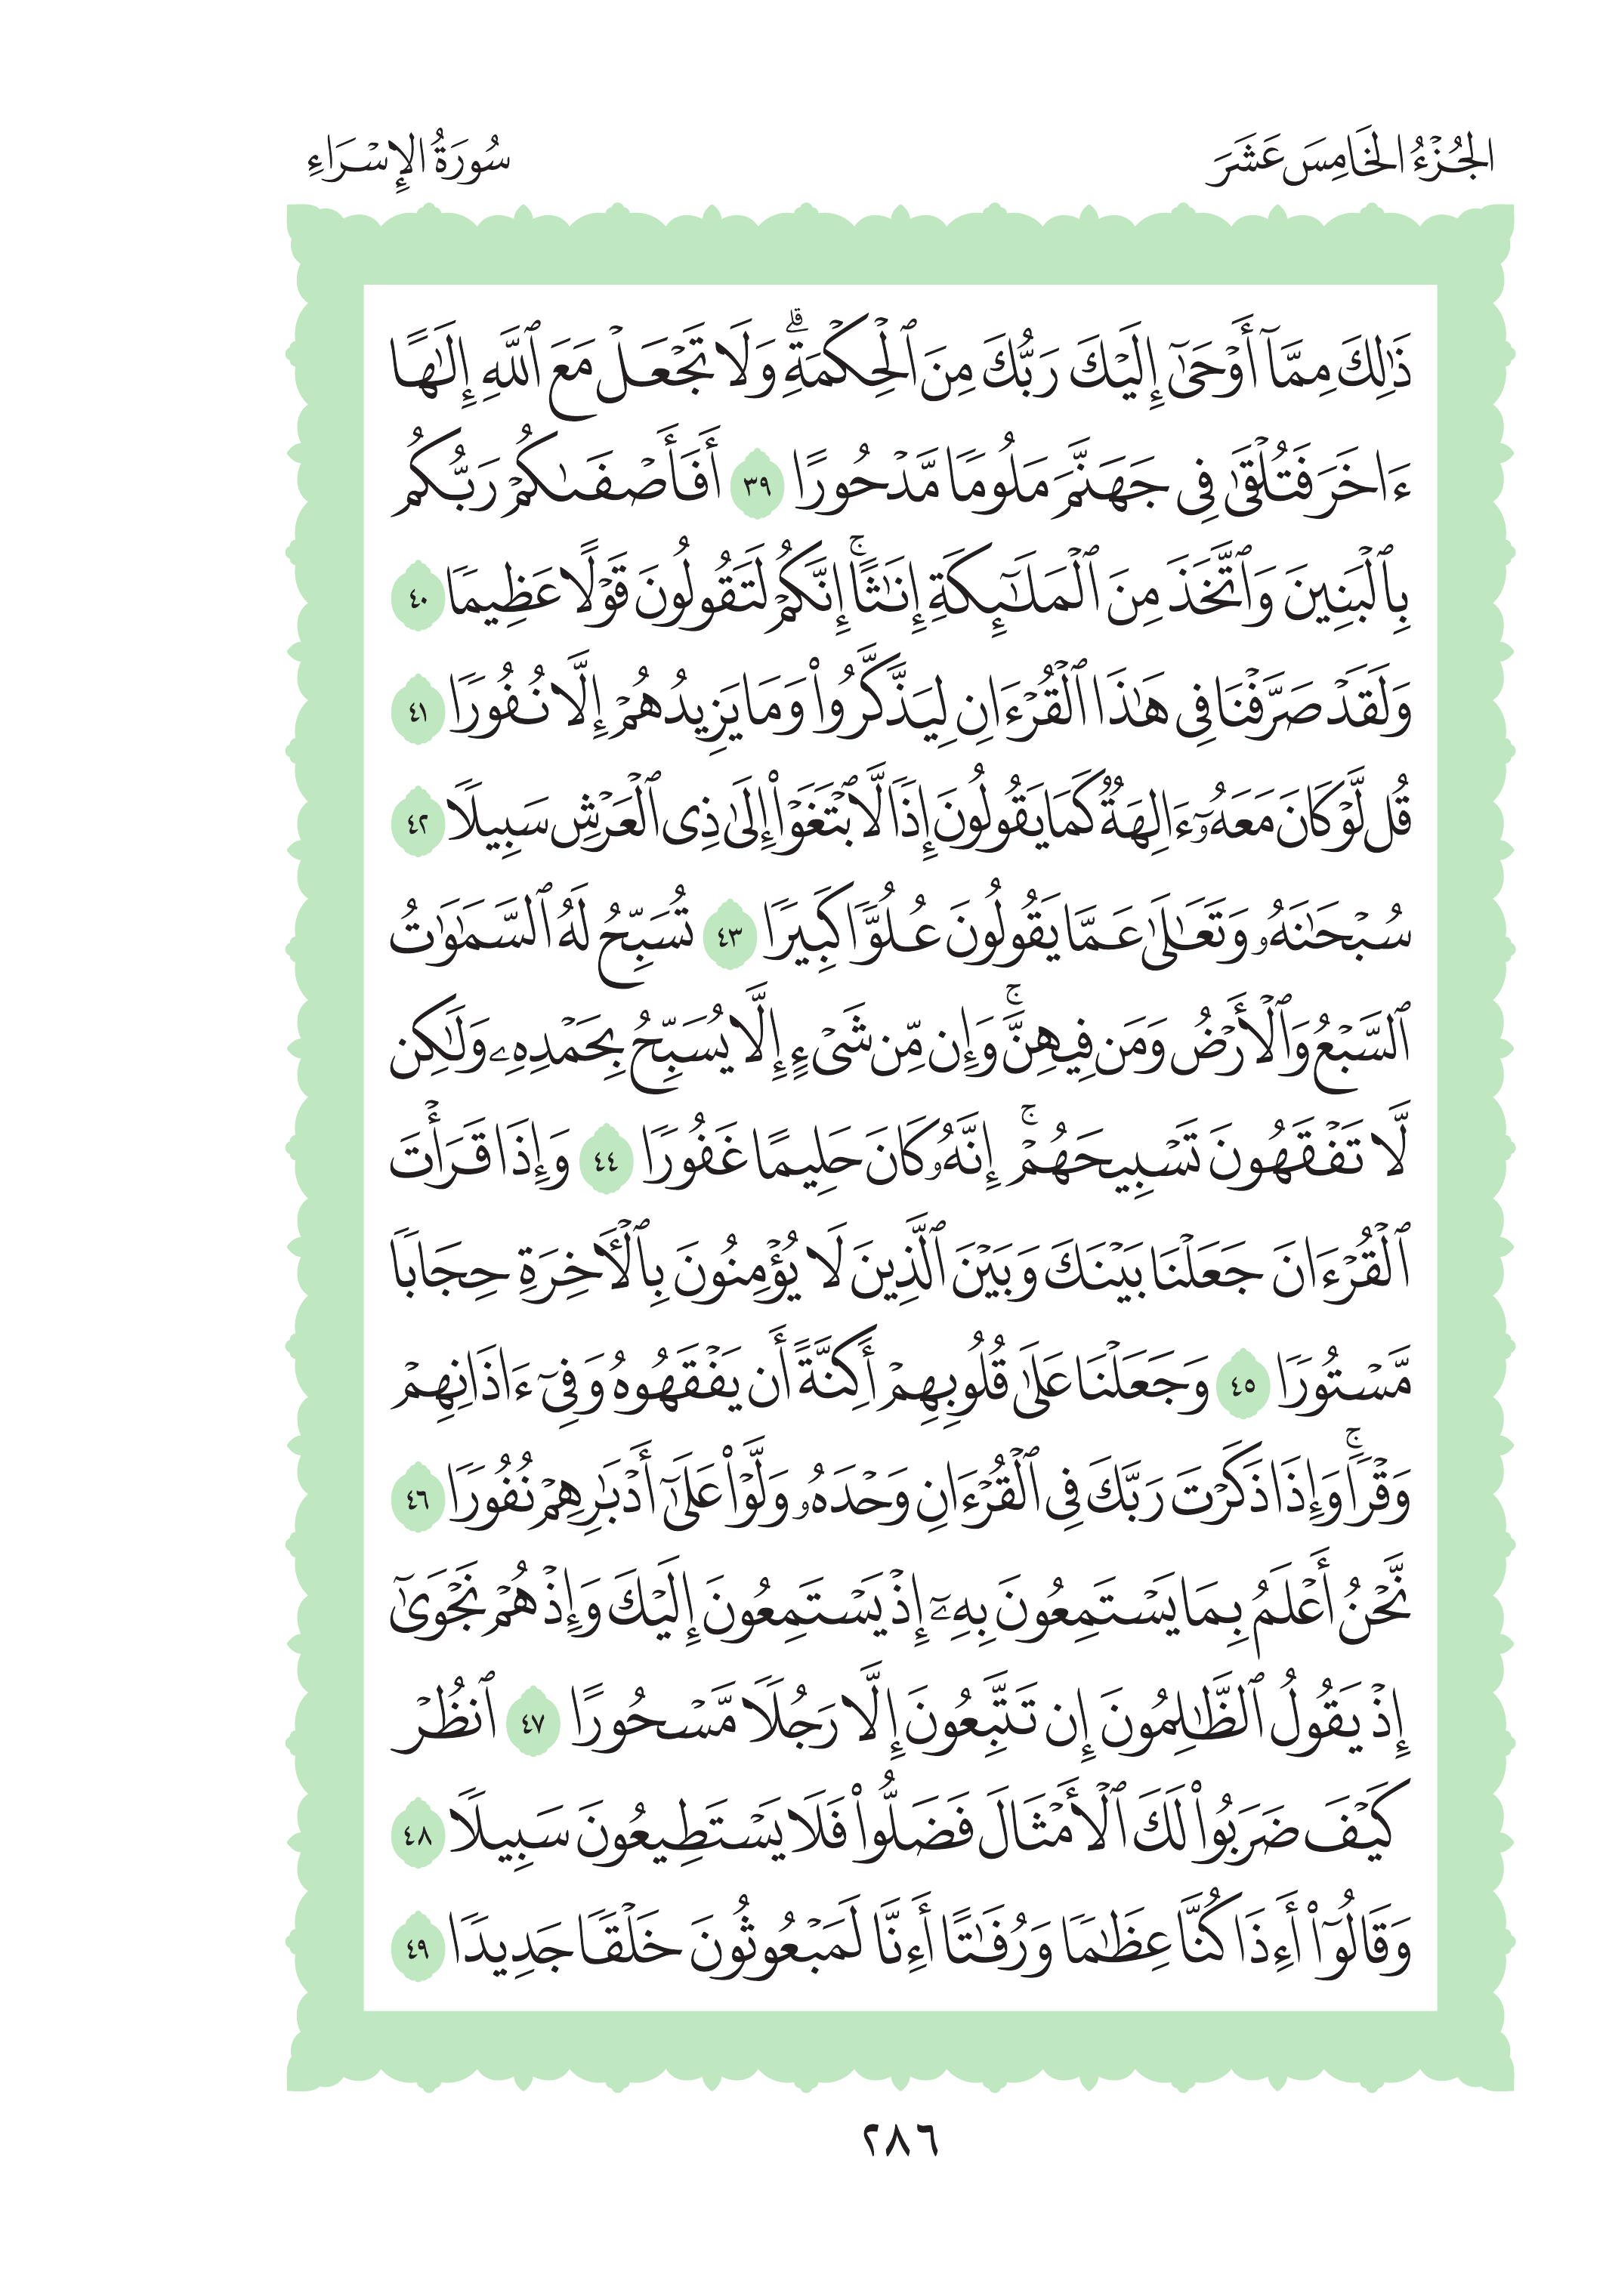 الجُزْءُ الخَامِسَ عَشَرَ
سُورَةُ الإِسْرَاءِ
ذَٰلِكَ مِمَّآ أَوْحَىٰٓ إِلَيْكَ رَبُّكَ مِنَ ٱلْحِكْمَةِۗ وَلَا تَجْعَلْ مَعَ ٱللَّهِ إِلَٰهًا
ءَاخَرَ فَتُلْقَىٰ فِى جَهَنَّمَ مَلُومًا مَّدْحُورًا ٣٩ أَفَأَصْفَىٰكُمْ رَبُّكُم
بِٱلْبَنِينَ وَٱتَّخَذَ مِنَ ٱلْمَلَٰٓئِكَةِ إِنَٰثًاۚ إِنَّكُمْ لَتَقُولُونَ قَوْلًا عَظِيمًا ٤٠
وَلَقَدْ صَرَّفْنَا فِى هَٰذَا ٱلْقُرْءَانِ لِيَذَّكَّرُوا۟ وَمَا يَزِيدُهُمْ إِلَّا نُفُورًا ٤١
قُل لَّوْ كَانَ مَعَهُۥٓ ءَالِهَةٌ كَمَا يَقُولُونَ إِذًا لَّٱبْتَغَوْا۟ إِلَىٰ ذِى ٱلْعَرْشِ سَبِيلًا ٤٢
سُبْحَٰنَهُۥ وَتَعَٰلَىٰ عَمَّا يَقُولُونَ عُلُوًّا كَبِيرًا ٤٣ تُسَبِّحُ لَهُ ٱلسَّمَٰوَٰتُ
ٱلسَّبْعُ وَٱلْأَرْضُ وَمَن فِيهِنَّۚ وَإِن مِّن شَىْءٍ إِلَّا يُسَبِّحُ بِحَمْدِهِۦ وَلَٰكِن
لَّا تَفْقَهُونَ تَسْبِيحَهُمْۚ إِنَّهُۥ كَانَ حَلِيمًا غَفُورًا ٤٤ وَإِذَا قَرَأْتَ
ٱلْقُرْءَانَ جَعَلْنَا بَيْنَكَ وَبَيْنَ ٱلَّذِينَ لَا يُؤْمِنُونَ بِٱلْـَٔاخِرَةِ حِجَابًا
مَّسْتُورًا ٤٥ وَجَعَلْنَا عَلَىٰ قُلُوبِهِمْ أَكِنَّةً أَن يَفْقَهُوهُ وَفِىٓ ءَاذَانِهِمْ
وَقْرًاۚ وَإِذَا ذَكَرْتَ رَبَّكَ فِى ٱلْقُرْءَانِ وَحْدَهُۥ وَلَّوْا۟ عَلَىٰٓ أَدْبَٰرِهِمْ نُفُورًا ٤٦
نَّحْنُ أَعْلَمُ بِمَا يَسْتَمِعُونَ بِهِۦٓ إِذْ يَسْتَمِعُونَ إِلَيْكَ وَإِذْ هُمْ نَجْوَىٰٓ
إِذْ يَقُولُ ٱلظَّٰلِمُونَ إِن تَتَّبِعُونَ إِلَّا رَجُلًا مَّسْحُورًا ٤٧ ٱنظُرْ
كَيْفَ ضَرَبُوا۟ لَكَ ٱلْأَمْثَالَ فَضَلُّوا۟ فَلَا يَسْتَطِيعُونَ سَبِيلًا ٤٨
وَقَالُوٓا۟ أَءِذَا كُنَّا عِظَٰمًا وَرُفَٰتًا أَءِنَّا لَمَبْعُوثُونَ خَلْقًا جَدِيدًا ٤٩
٢٨٦